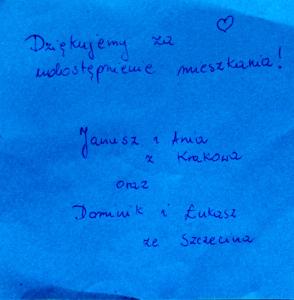 Dziękujemy za
udostępnienie mieszkania!
Janusz i Ania
z Krakowa
oraz
Dominik i Łukasz
ze Szczecina